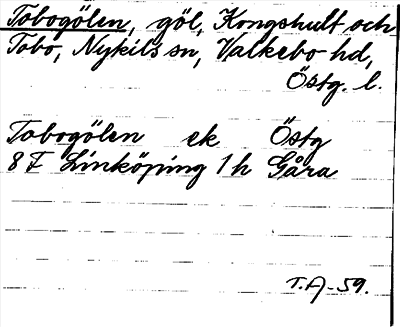 Tobogölen, göl, Kongshult och
Tobo, Nykils sn, Valkebo hd,
Östg. l.
Tobogölen ek Östg
8 F Linköping 1 h Gåra
T.A-59.